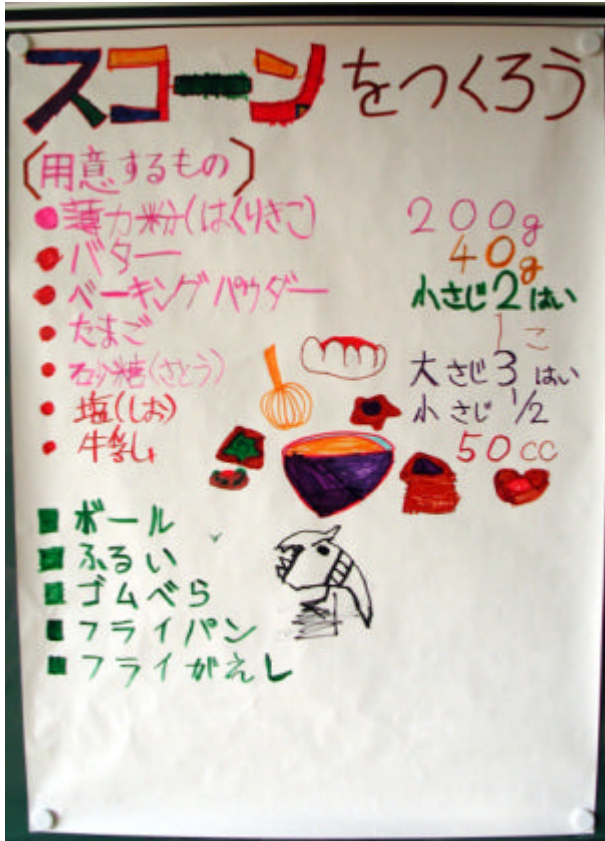 スコーンをつくろう
(用意するもの)
薄力粉(はくりきこ) 200g
バター 40g
ベーキングパウダー 小さじ2はい
たまご 1こ
砂糖(さとう) 大さじ3はい
塩(しお) 小さじ1/2
牛乳 50cc
ボール
ふるい
ゴムべら
フライパン
フライがえし